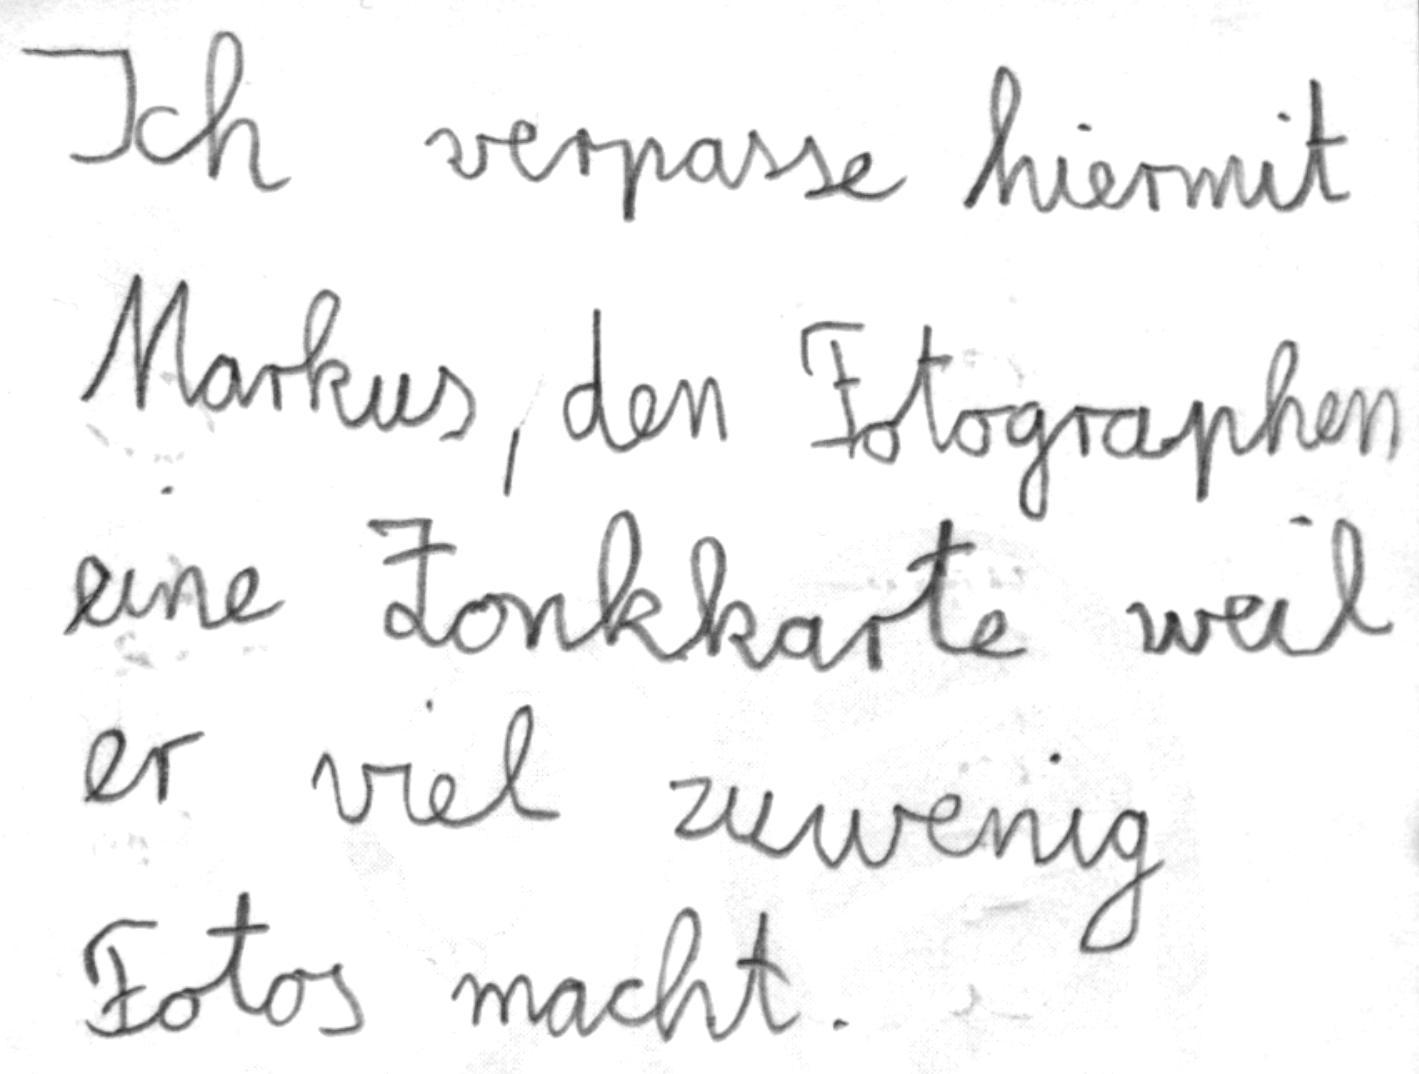 Ich verpasse hiermit
Markus, den Fotographen
eine Zonkkarte weil
er viel zuwenig
Fotos macht.